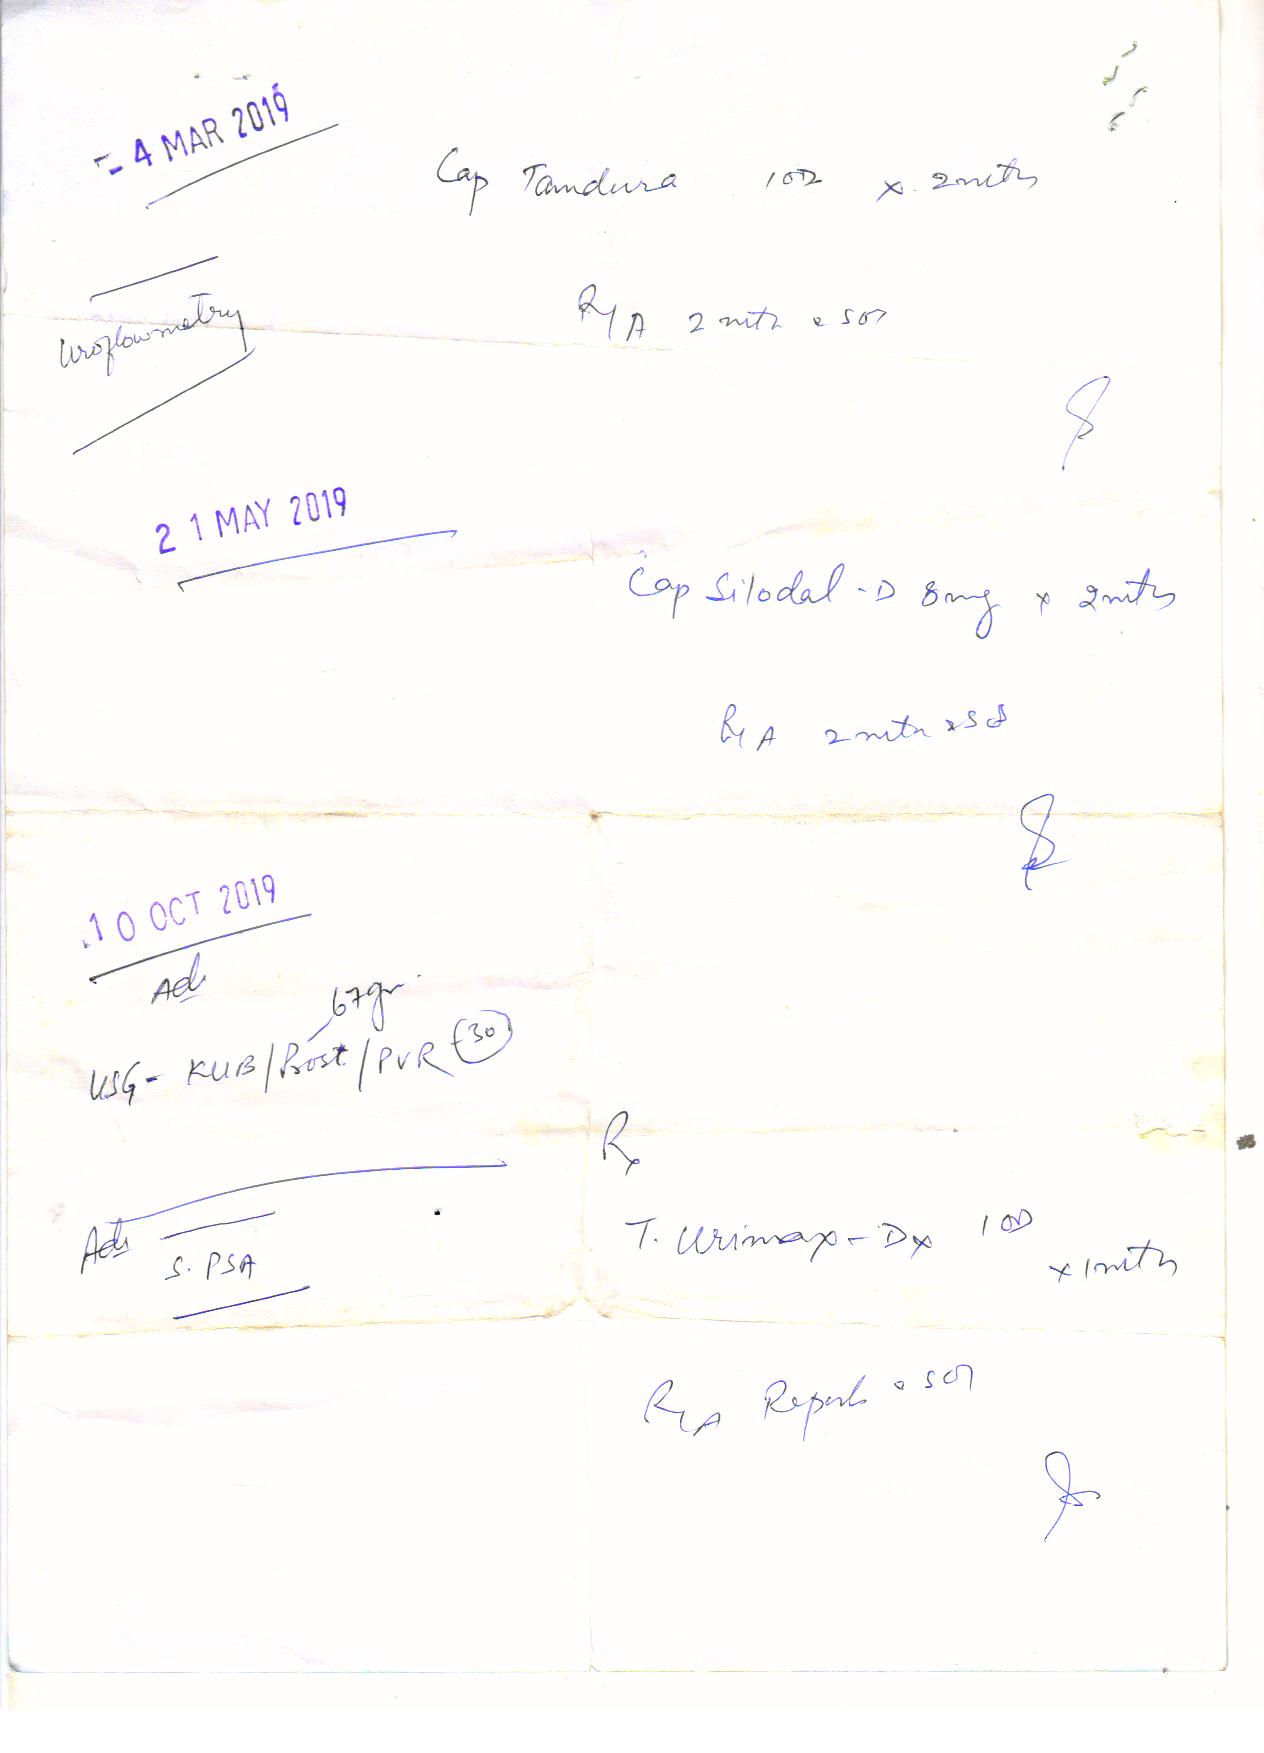 - 4 MAR 2019
Cap Tamdura 1OD x 2mths
Uroflowmetry
R/A 2 mth & SOS
2 1 MAY 2019
Cap Silodal-D 8mg x 2mths
R/A 2mth & SOS
10 OCT 2019
Adv
67gm
USG- KUB/Prost/PVR (30)
Rx
Adv S. PSA
T. Urimax-D 1 OD
x 1mth
R/A Reports & SOS